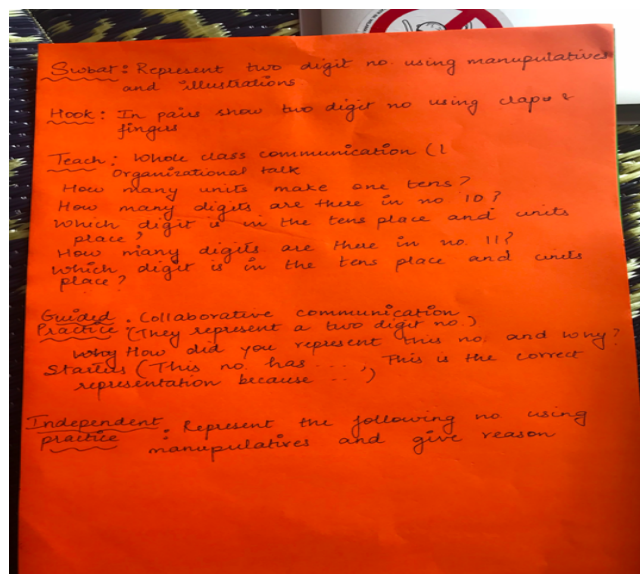 Swbat: Represent two digit no. using manupulatives
and illustrations
Hook: In pairs show two digit no using claps &
fingers
Teach: Whole class communication (1
Organizational talk
How many units make one tens?
How many digits are there in no 10?
Which digit is in the tens place and units
place?
How many digits are there in no. 11?
Which digit is in the tens place and units
place?
Guided : Collaborative communication
Practice (They represent a two digit no.)
Why How did you represent this no. and why?
Starters (This no. has ..., This is the correct
representation because ...)
Independent : Represent the following no using
practice manupulatives and give reason